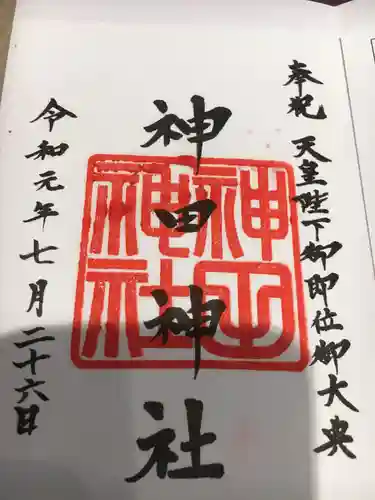 奉祝 天皇陛下御即位御大典
神田神社
令和元年七月二十六日